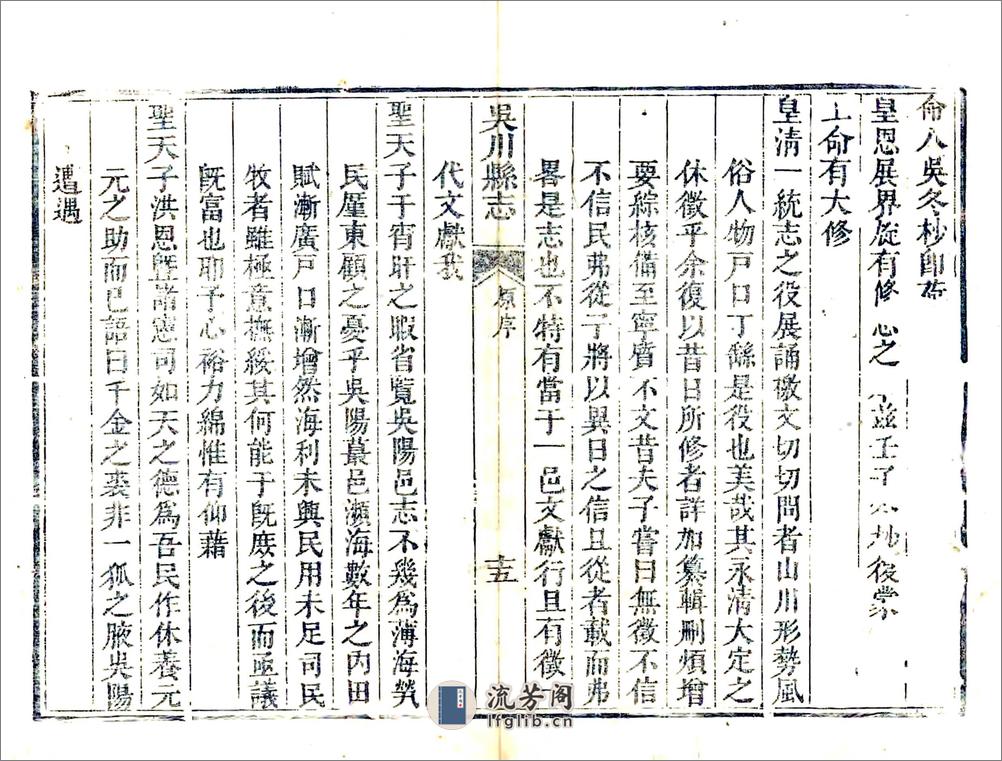 命入吳冬杪即
皇恩展界旋有修志之 茲壬子 復蒙
上命有大修
皇清一統志之役展誦檄文切切問者山川形勢風
俗人物戸口丁繇是役也美哉其永清大定之
休徵乎余復以昔日所修者詳加纂輯刪煩增
要綜核備至寧質不文昔夫子嘗曰無徵不信
不信民弗從予將以異日之信且從者載而弗
畧是志也不特有當于一邑文獻行且有徵
吳川縣志
原序
十五
代文獻哉
聖天子于宵旰之暇省覽吳陽邑志不幾為薄海煢
民厪東顧之憂乎吳陽蕞邑瀕海數年之内田
賦漸廣戸口漸增然海利未興民用未足司民
牧者雖極意撫綏其何能于旣庶之後而亟議
旣富也耶予心裕力綿惟有仰藉
聖天子洪恩曁諸憲司如天之德為吾民作休養元
元之助而已語曰千金之裘非一狐之腋吳陽
遭遇
流芳阁
lfglib.cn